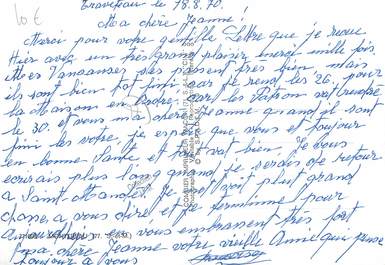 10 €
le 78.8.70.
Ma chère Jeanne!
Merci pour votre gentille Lettre que je reçue
Hier avec un très grand plaisir merci mille fois.
Mes Vancanses ses passent très bien mais
ils sont bien tot fini car je rend les 26. pour
la Maison en Ordre. car les Patron vont
le 30. et vous ma chère Jeanne quand il sont
fini les votre, je espère que vous et toujour
en bonne Santé et tout vat bien. Je vous
ecrirais plus long quand je serais de retour
a Saint-Mandé. Je voit plus grand
chosse a vous dire et je termine pour
vous embrassent très fort
chère Jeanne votre vieille Amie qui pense
toujour a vous